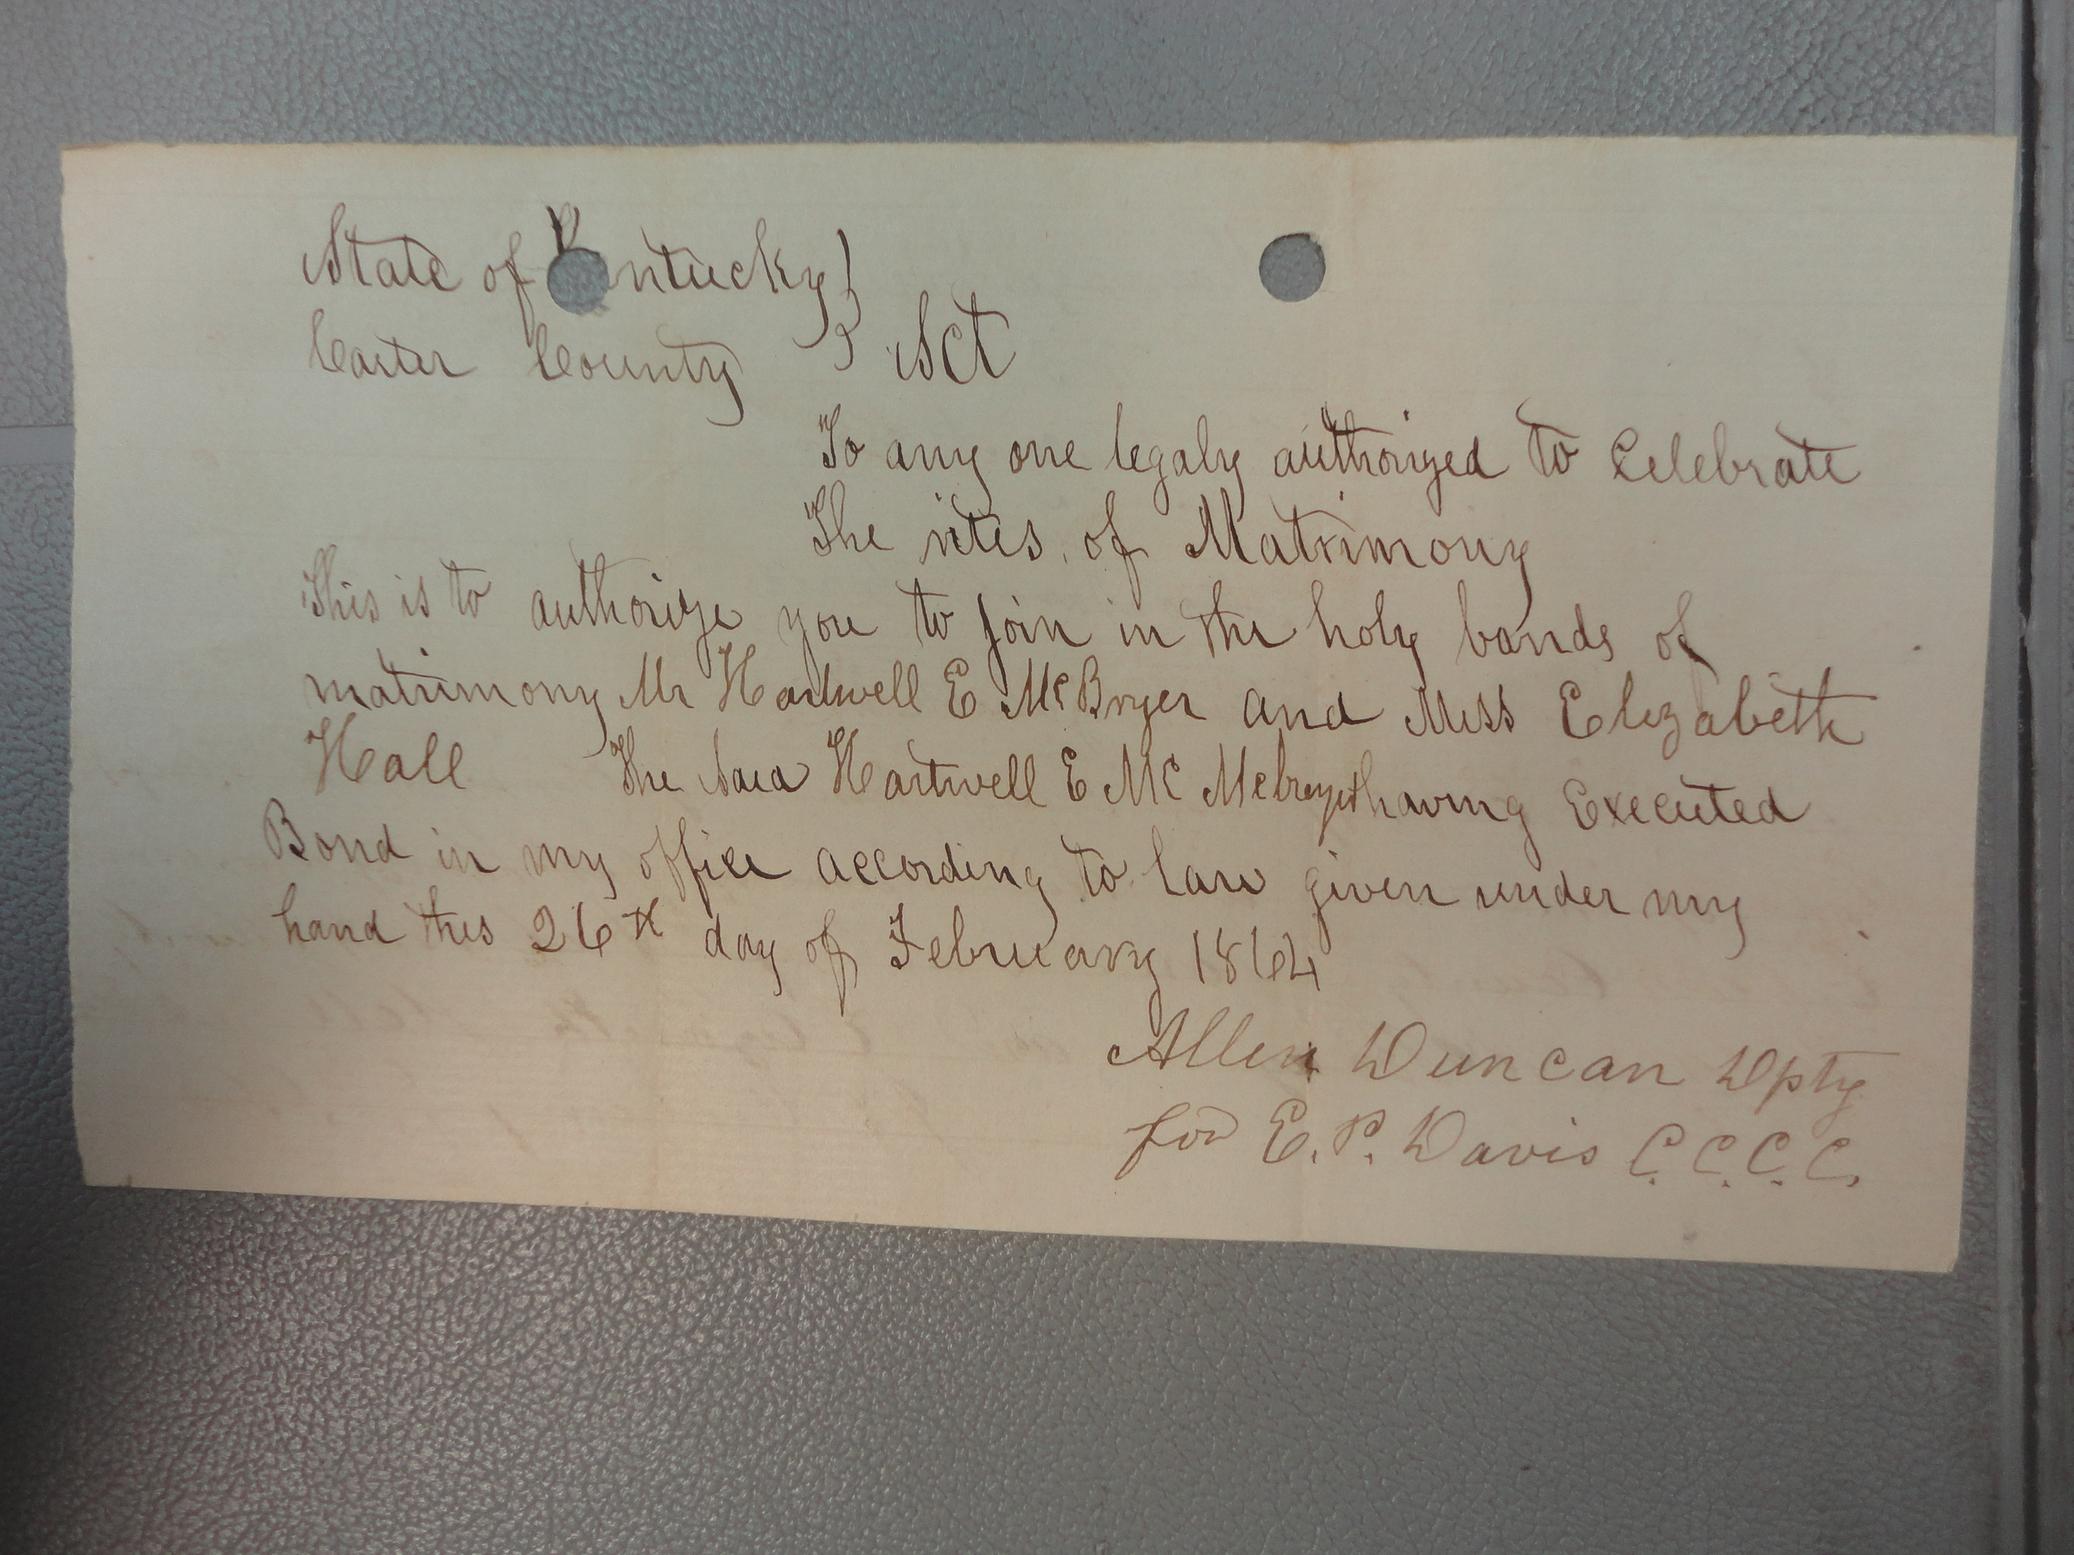 State of Kentucky }
Carter County } Sct
To any one legaly authorized to Celebrate
The rites of Matrimony
This is to authorize you to join in the holy bands of
matrimony Mr Hartwell E McBryer and Miss Elizabeth
Hall The Said Hartwell E Mc having Executed
Bond in my office according to law given under my
hand this 26th day of February 1864
Allen Duncan Dpty
for E. P. Davis C.C.C.C.